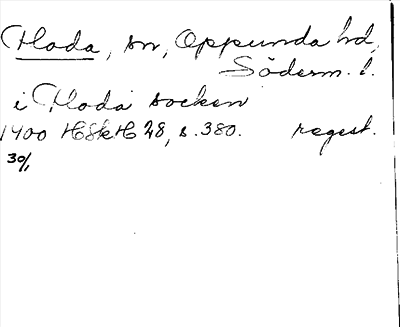 Floda, sn, Oppunda hd,
Söderm. l.
i Floda socken
1400 HSkH 28, s. 380. regest.
30/1